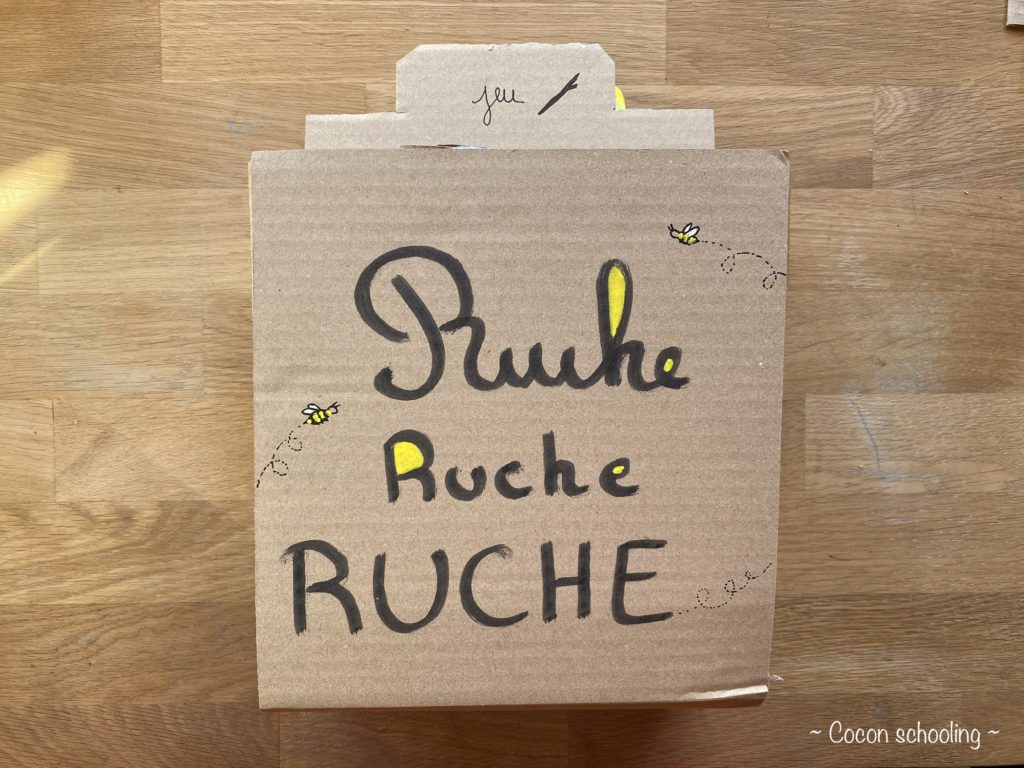 jeu
Ruche
Ruche
RUCHE
~ Cocon schooling ~